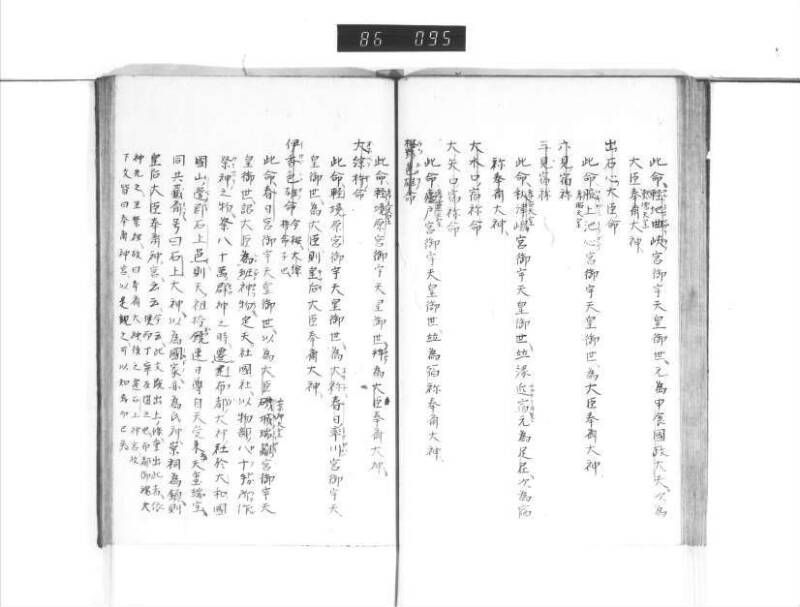 86 095
此命輕地曲峽宮御宇天皇御世元為申食國政大夫次為
大臣奉齋大神
出石心大臣命
此命掖上池心宮御宇天皇御世為大臣奉齋大神
汴見宿祢
三見宿祢
此命秋津嶋宮御宇天皇御世並縁近宿元為足尼次為宿
祢奉齋大神
大水口宿祢命
大矢口宿祢命
此命廬戸宮御宇天皇御世並為宿祢奉齋大神
欝色雄命
此命輕境原宮御宇天皇御世拜為大臣奉齋大神
大綜杵命
此命輕境原宮御宇天皇御世為大祢春日率川宮御宇天
皇御世為大臣則皇后大臣奉齋大神
伊香色雄命
此命春日宮御宇天皇御世以為大臣磯城瑞籬宮御宇天
皇御世詔大臣為班神物定天社國社以物部八十手所作
祭神之物祭八十萬群神之時遷建布都大神社於大和國
國山邊郡石上邑則天祖授饒速日尊自天受来天璽瑞宝
同共藏齋号曰石上大神以為國家亦為氏神崇祠為鎮則
皇后大臣奉齋神宮